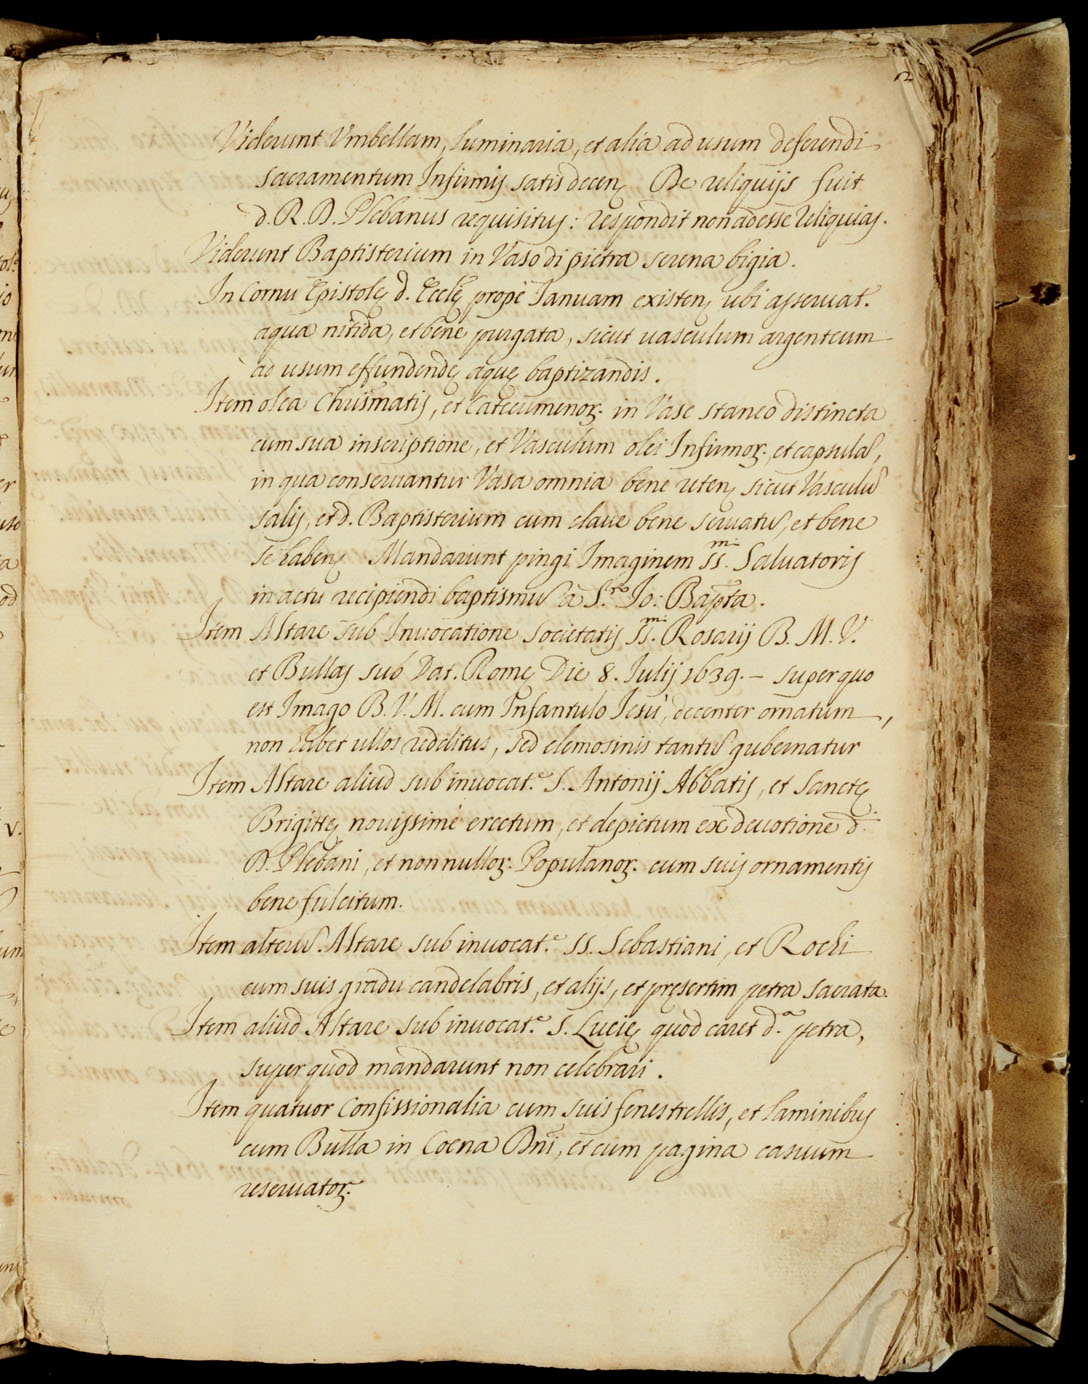 2
Viderunt Vmbellam, luminaria, et alia ad usum deferendi
sacramentum Infirmis satis decenꝫ De reliquijs fuit
d. R. D. Plebanus requisitus: respondit non adesse reliquias.
Viderunt Baptisterium in Vaso di pietra serena bigia.
In Cornu Epistolę d. Ecclę propè Ianuam existenꝫ ubi asseruat.r
aqua nitida, et bene purgata, sicut uasculum argenteum
ad usum effundendę aquę baptizandis.
Item olea Chrismatis, et Catecumenoꝝ. in Vase staneo distincta
cum sua inscriptione, et Vasculum olei Infirmoꝝ. et capsulā,
in qua conseruantur Vasa omnia bene retenꝫ sicut Vasculū
salis, et d. Baptisterium cum claue bene seruatū, et bene
se habenꝫ Mandarunt pingi Imaginem SS.m Saluatoris
in actu recipiendi baptismū à S.to Io: Bapta.
Item Altare sub Inuocatione societatis SS.m Rosarij B. M. V.
et Bullas sub Dat. Romę Die 8. Iulij 1639. – super quo
est Imago B. V. M. cum Infantulo Iesù, decenter ornatum,
non habet ullos redditus, sed elemosinis tantū gubernatur
Item Altare aliud sub inuocat.e S. Antonij Abbatis, et Sanctę
Brigittę nouissimè erectum, et depictum ex deuotione d.
D. Plebani, et nonnulloꝝ. Populanoꝝ. cum suis ornamentis
bene fulcitum.
Item alterū. Altare sub inuocat.e SS. Sebastiani, et Rochi
cum suis gradu candelabris, et alijs, et pręsertim petra sacrata.
Item aliud Altare sub inuocat.e S. Lucię quod caret d.a petra,
super quod mandarunt non celebrari.
Item quatuor Confissionalia cum suis fenestrellis, et laminibus
cum Bulla in Coena Dñi, et cum pagina casuum
reseruatoꝝ.